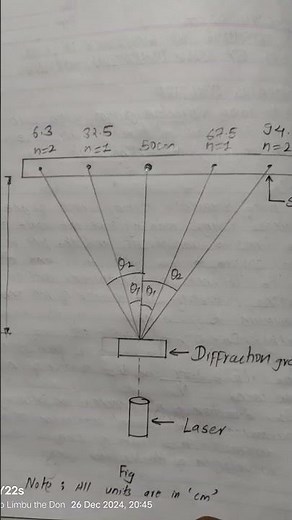 6.3 32.5 50cm 67.5 94.
n=2 n=1 n=1 n=2
θ2 θ2
θ1 θ1
← Diffraction gra
← Laser
Fig
Note : All units are in 'cm'
Y22s
o Limbu the Don 26 Dec 2024, 20:45